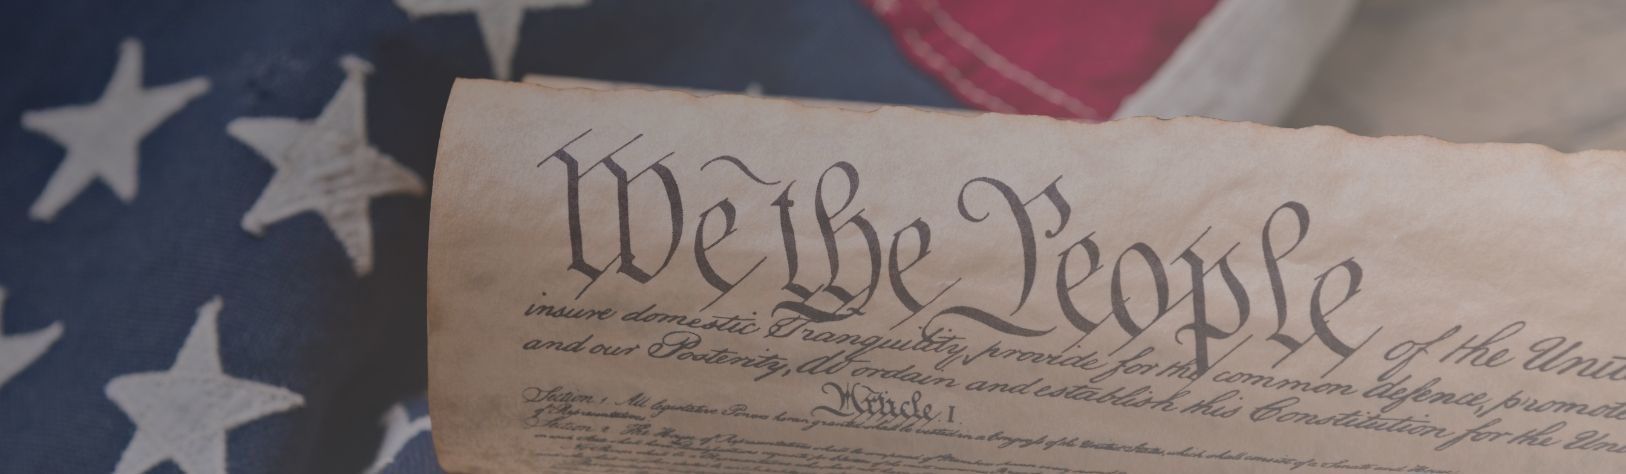 We the People of the Unit
insure domestic Tranquility, provide for the common defence, promote
and our Posterity, do ordain and establish this Constitution for the Un
Article. I.
Section 1 All legislative Powers herein granted shall be vested in a Congress of the United States, which shall consist of a Senate and
of Representatives.
Section 2 The House of Representatives